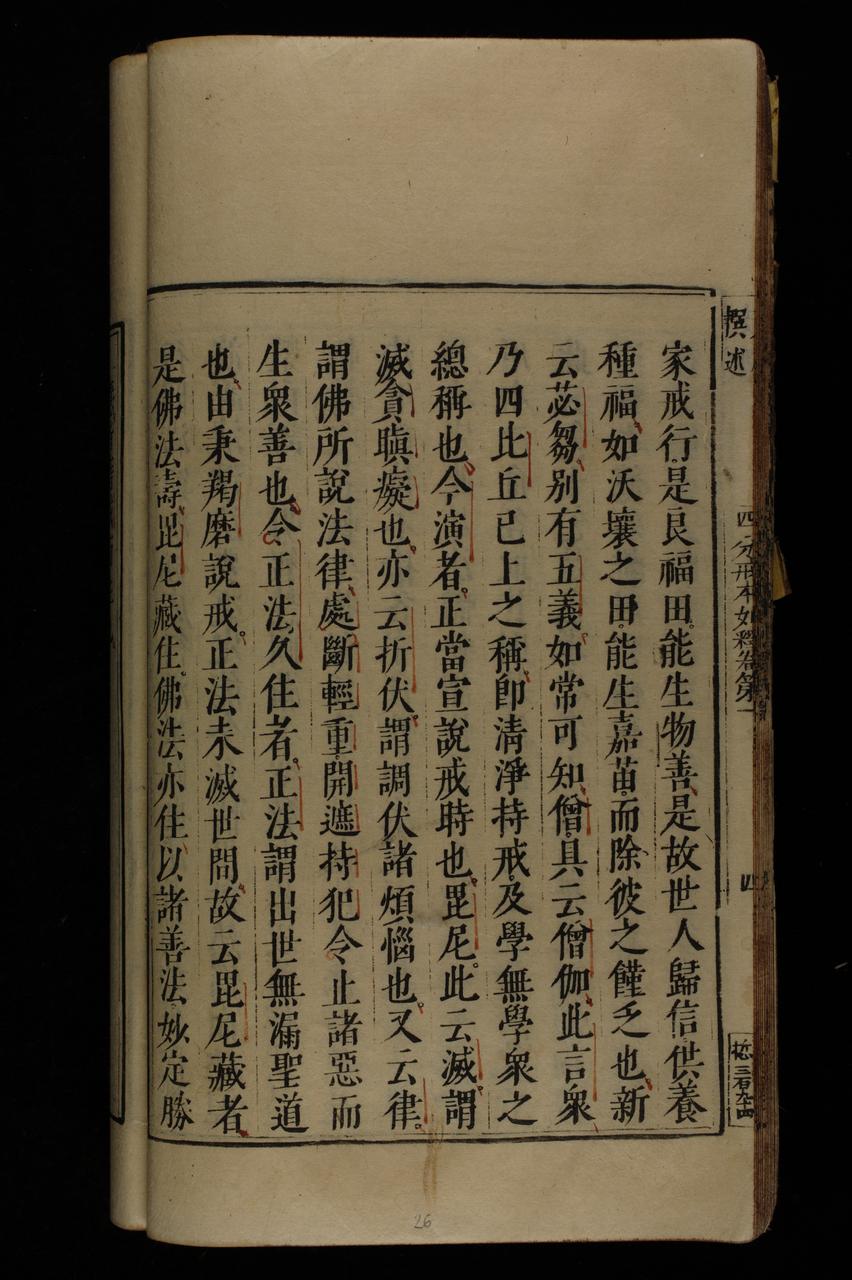 撰述
四分戒本如釋卷第一
四
家戒行是良福田能生物善是故世人歸信供養
種福如沃壤之田能生嘉苗而除彼之饉乏也新
云苾芻別有五義如常可知僧具云僧伽此言衆
乃四比丘已上之稱即清淨持戒及學無學衆之
總稱也今演者正當宣說戒時也毘尼此云滅謂
滅貪瞋癡也亦云折伏謂調伏諸煩惱也又云律
謂佛所說法律處斷輕重開遮持犯令止諸惡而
生衆善也令正法久住者正法謂出世無漏聖道
也由秉羯磨說戒正法未滅世間故云毘尼藏者
是佛法壽毘尼藏住佛法亦住以諸善法妙定勝
26